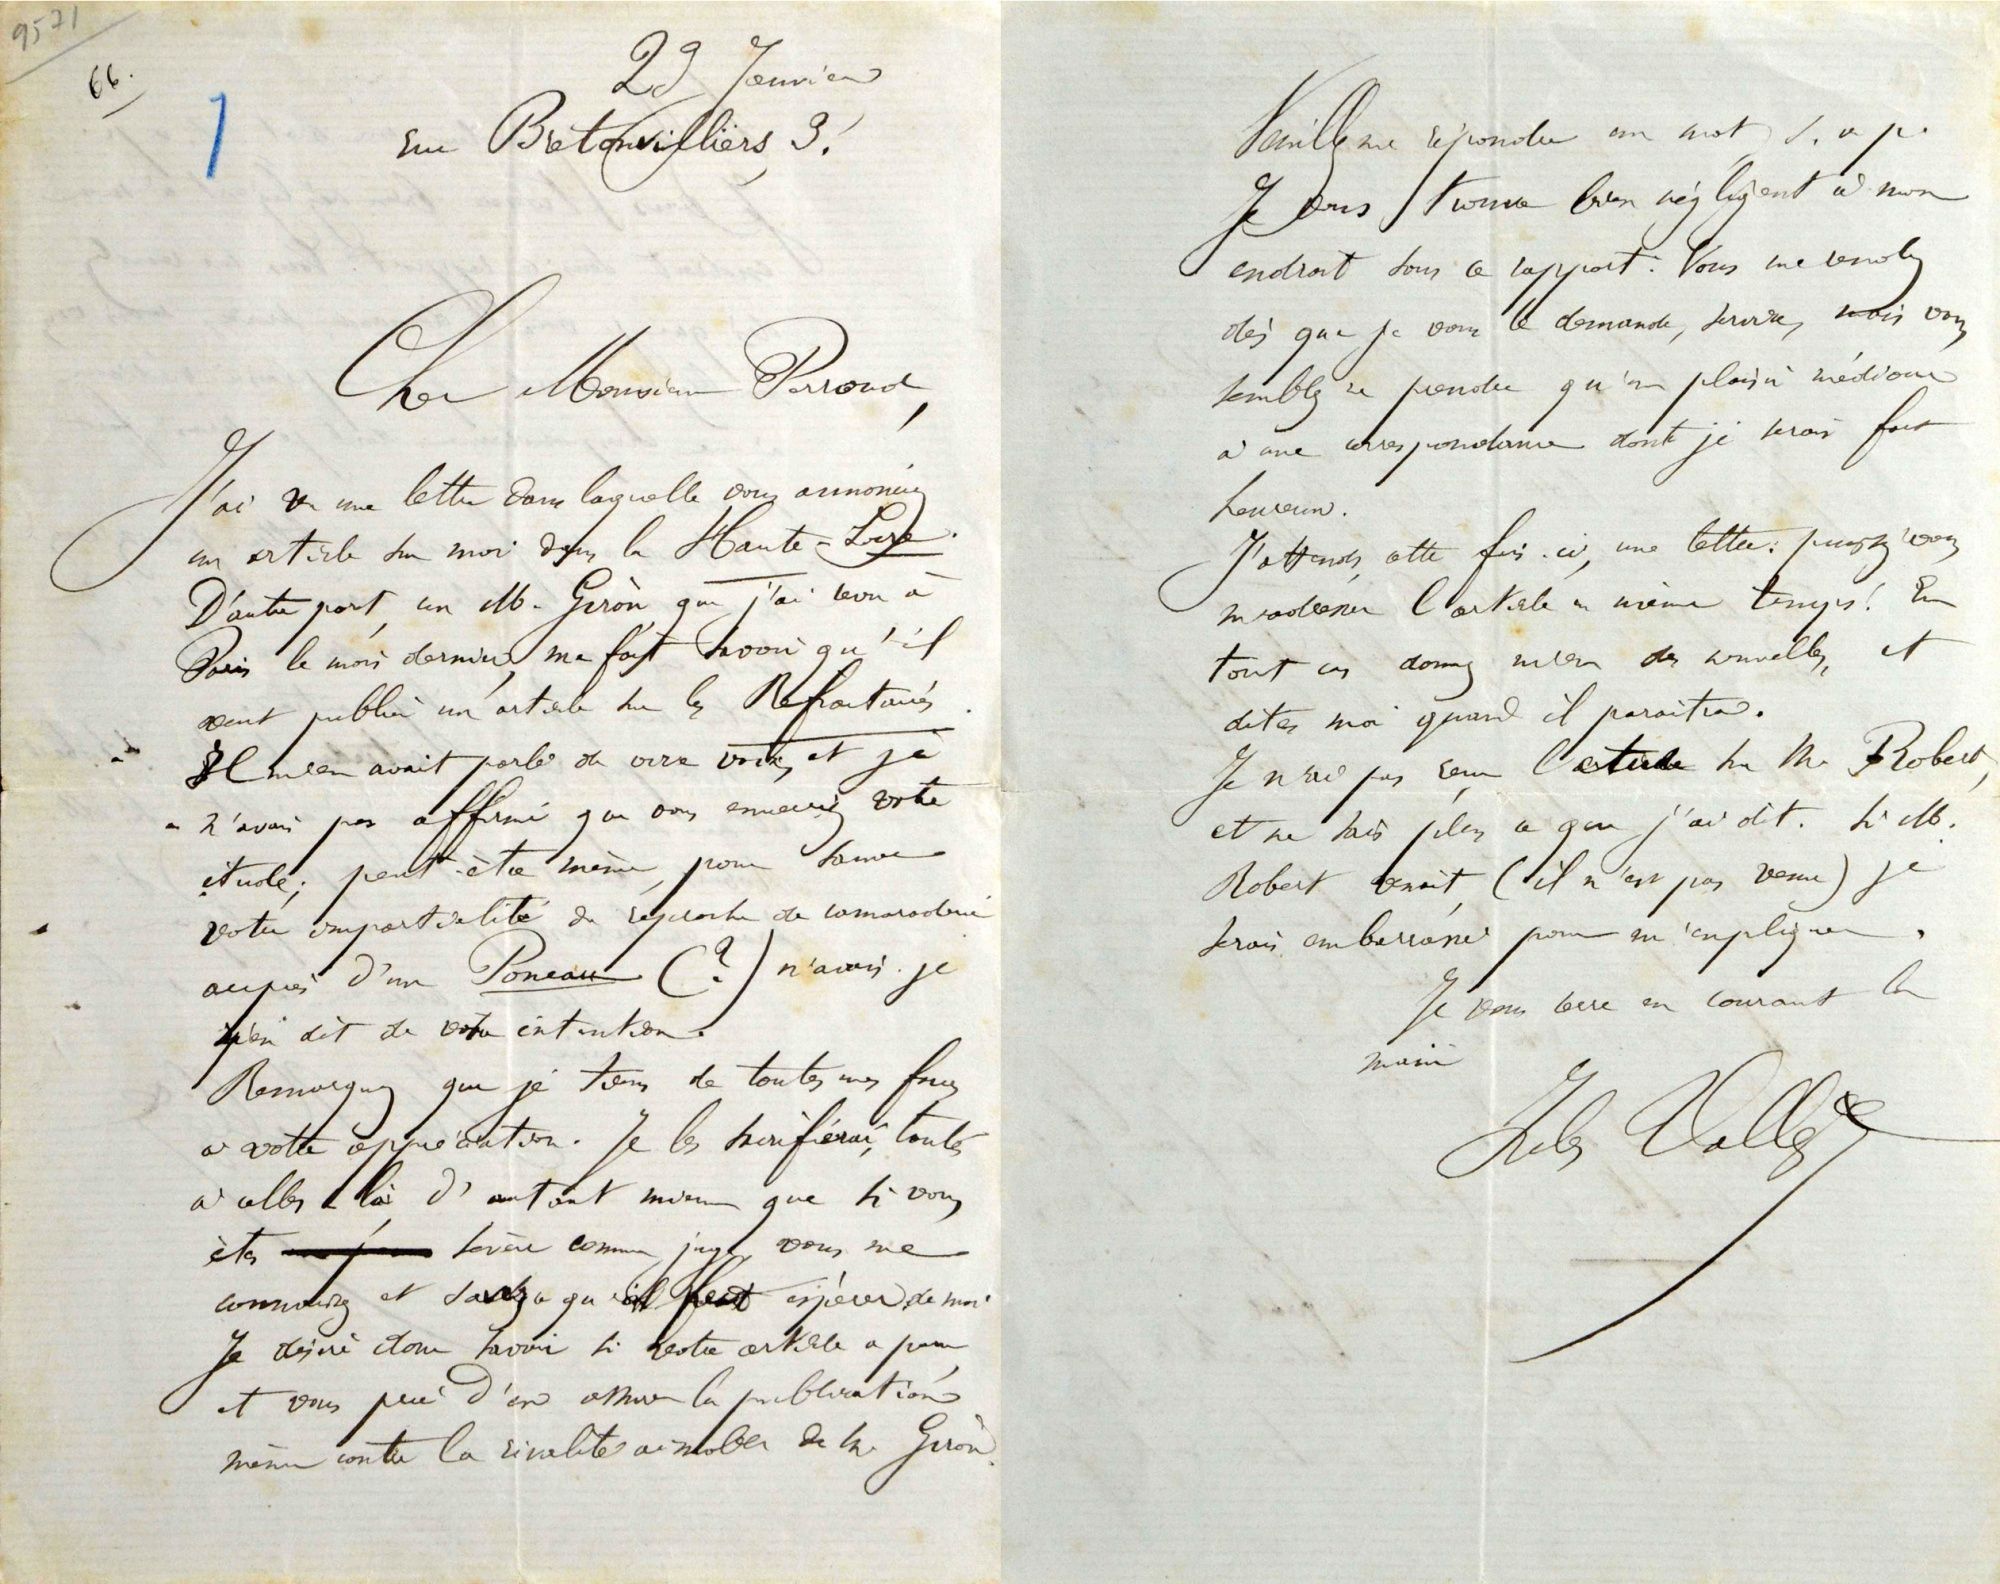 9571
66.
1
29 Janvier
rue Bretonvilliers, 3.
Cher Monsieur Perroud,
J'ai vu une lettre dans laquelle vous annonciez
un article sur moi dans la Haute-Loire.
D'autre part, un M. Giròn que j'ai revu à
Paris le mois dernier, me fait savoir qu'il
veut publier un article sur les Refractaires.
Il m'en avait parlé de vive voix, et je
n'avais pas affirmé que vous enverriez votre
étude; peut-être même, pour sauver
votre impartialité du reproche de camaraderie
auprès d'un Ponceau (?) n'avais-je
rien dit de votre intention.
Remarquez que je tiens de toutes mes forces
à votre appréciation. Je les sacrifierai, toutes
à celles-là, d'autant mieux que si vous
êtes sévère comme juge, vous me
connaissez et savez ce qu'il faut espérer de moi
Je désire donc savoir si votre article a paru
et vous prie d'en assurer la publication
même contre la rivalité aimable de M. Giròn.
Veuillez me répondre un mot, s. v. p.
Je vous trouve bien négligent à mon
endroit sous ce rapport. Vous me rendez
dès que je vous le demande, service, mais vous
semblez ne prendre qu'un plaisir médiocre
à une correspondance dont je serais fort
heureux.
J'attends, cette fois-ci, une lettre: puissiez-vous
m'adresser l'article en même temps! En
tout cas donnez m'en des nouvelles, et
dites moi quand il paraitra.
Je n'ai pas revu l'article sur M. Robert,
et ne sais plus ce que j'ai dit. Si M.
Robert venait, (il n'est pas venu) je
serais embarrassé pour m'expliquer.
Je vous serre en courant la
main
Jules Vallès